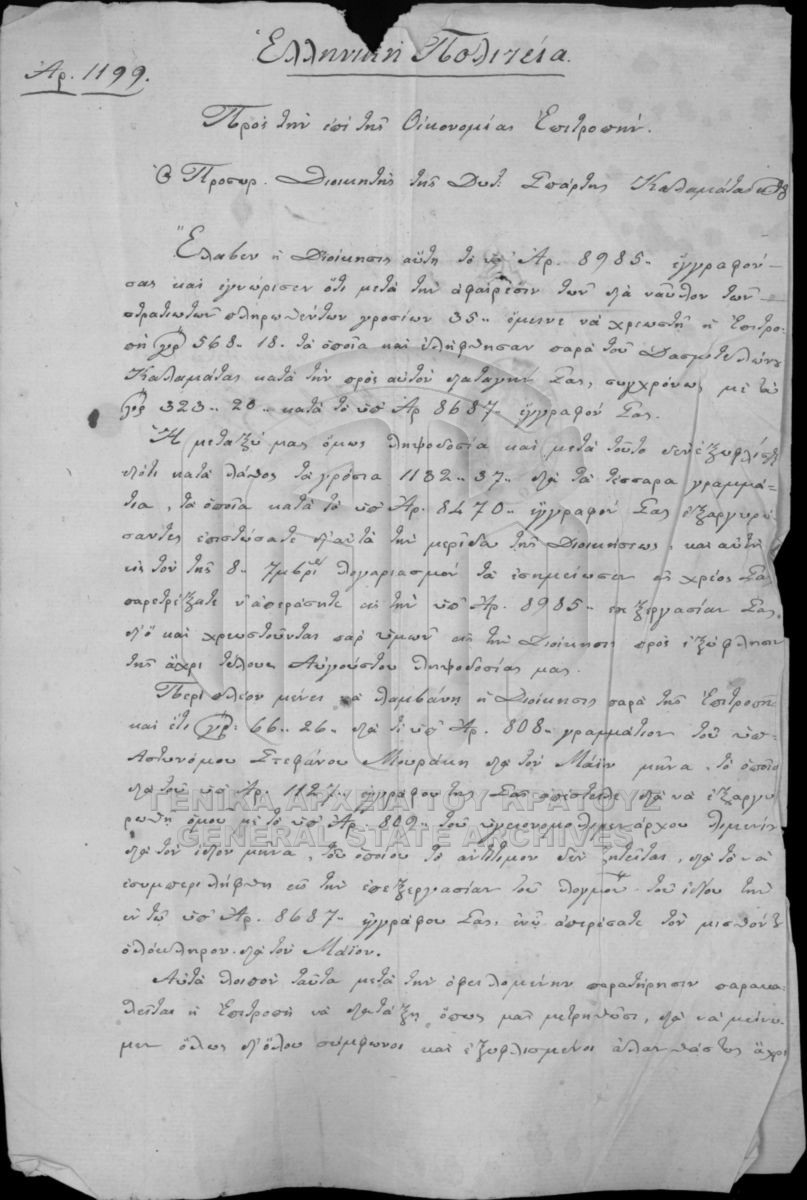 Ἑλληνικὴ Πολιτεία.
Ἀρ. 1199.
Πρὸς τὴν ἐπὶ τῆς Οἰκονομίας Ἐπιτροπήν.
Ὁ Προσωρ. Διοικητὴς τῆς Δυτ: Σπάρτης Καλαμάτας
Ἔλαβεν ἡ Διοίκησις αὕτη τὸ ὑπ' Ἀρ. 8985,, ἔγγραφόν
σας καὶ ἐγνώρισεν ὅτι μετὰ τὴν ἀφαίρεσιν τῶν διὰ ναῦλον τῶν
στρατιωτῶν πληρωθέντων γροσίων 35,, ἔμεινε νὰ χρεωστῇ ἡ Ἐπιτρο-
πὴ γρ 568,, 18. τὰ ὁποῖα καὶ ἐλήφθησαν παρὰ τοῦ Δασμοτελώνου
Καλαμάτας κατὰ τὴν πρὸς αὐτὸν διαταγήν Σας, συγχρόνως μὲ τὰ
γρ 323,, 20,, κατὰ τὸ ὑπ' Ἀρ 8687,, ἔγγραφόν Σας.
Ἡ μεταξύ μας ὅμως ληψοδοσία καὶ μετὰ τοῦτο δὲν ἐξωφλίσθη
διότι κατὰ λάθος τὰ γρόσια 1132,, 37,, διὰ τὰ τέσσαρα γραμμά-
τια, τὰ ὁποῖα κατὰ τὸ ὑπ' Ἀρ. 8470,, ἔγγραφόν Σας ἐξαργυρώ
σαντες ἐπιστώσατε δι' αὐτὰ τὴν μερίδα τῆς Διοικήσεως, καὶ αὐτὴ
εἰς τὸν τῆς 8,, 7μβρίου λογαριασμὸν τὰ ἐσημείωσεν ὡς χρέος Σας
παρετρέξατε ν' ἀπεράσητε εἰς τὴν ὑπ' Ἀρ. 8985,, ἐπεξεργασίαν Σας,
δι' ὃ καὶ χρεωστοῦνται παρ' ὑμῶν εἰς τὴν Διοίκησιν πρὸς ἐξώφλησιν
τῆς ἄχρι τέλους Αὐγούστου ληψοδοσίας μας.
Περὶ πλέον μένει νὰ λαμβάνῃ ἡ Διοίκησις παρὰ τῆς Ἐπιτροπῆς
καὶ ἔτι γρ: 66,, 26,, διὰ τὸ ὑπ' Ἀρ. 808,, γραμμάτιον τοῦ ὑπ-
Ἀστυνόμου Στεφάνου Μουράκη διὰ τὸν Μάϊν μῆνα, τὸ ὁποῖον
διὰ τοῦ ὑπ' Ἀρ. 1127,, ἐγγράφου της Σᾶς ἀπέστειλε διὰ νὰ ἐξαργυ-
ρωθῇ ὁμοῦ μὲ τὸ ὑπ' Ἀρ. 809,, τοῦ ὑγειονομολιμενάρχου
διὰ τὸν ἴδιον μῆνα, τοῦ ὁποίου τὸ ἀντίτιμον δὲν ζητεῖται, διὰ τὸ νὰ
ἐσυμπεριλήφθη εἰς τὴν ἐπεξεργασίαν τοῦ λογ/μοῦ τοῦ ἰδίου τὴν
ἐν τῷ ὑπ' Ἀρ. 8687,, ἐγγράφου Σας, ἐνῷ ἀπεράσατε τὸν μισθόν του
ὁλόκληρον διὰ τὸν Μάϊον.
Αὐτὰ λοιπὸν ταῦτα μετὰ τὴν ὀφειλομένην παρατήρησιν παρακα-
λεῖται ἡ Ἐπιτροπὴ νὰ διατάξῃ ὅπως μᾶς μετρηθῶσι, διὰ νὰ μείνω-
μεν ὅλως διόλου σύμφωνοι καὶ ἐξωφλισμένοι ἀλλανθάστως ἄχρι
ΓΕΝΙΚΑ ΑΡΧΕΙΑ ΤΟΥ ΚΡΑΤΟΥΣ
GENERAL STATE ARCHIVES